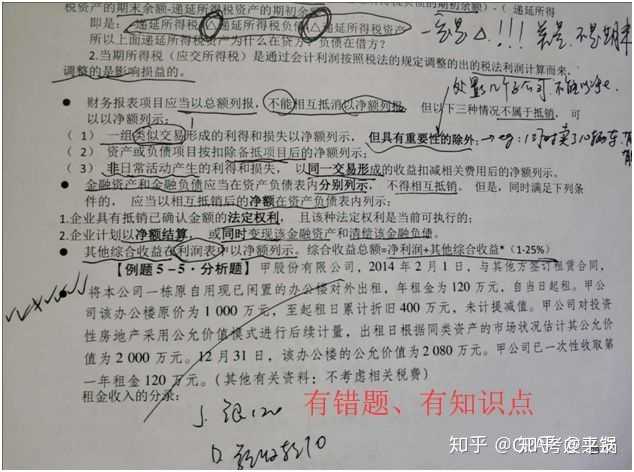 税资产的期末余额-递延所得税资产的期初余额
即是:-递延所得税△递延所得税负债-△递延所得税资产
一定是△!!!差是 不是期末
所以上面递延所得税资产为什么在贷方,负债在借方?
2.当期所得税(应交所得税)是通过会计利润按照税法的规定调整的出的税法利润计算而来,
调整的是影响损益的。
● 财务报表项目应当以总额列报,不能相互抵消以净额列报,但以下三种情况不属于抵销,可
以以净额列示:
(1) 一组类似交易形成的利得和损失以净额列示,但具有重要性的除外;
(2) 资产或负债项目按扣除备抵项目后的净额列示;
(3) 非日常活动产生的利得和损失,以同一交易形成的收益扣减相关费用后的净额列示。
● 金融资产和金融负债应当在资产负债表内分别列示,不得相互抵销。但是,同时满足下列条
件的,应当以相互抵销后的净额在资产负债表内列示:
1.企业具有抵销已确认金额的法定权利,且该种法定权利是当前可执行的;
2.企业计划以净额结算,或同时变现该金融资产和清偿该金融负债。
● 其他综合收益在利润表中以净额列示。综合收益总额=净利润+其他综合收益*(1-25%)
【例题5-5·分析题】甲股份有限公司,2014年2月1日,与其他方签订租赁合同,
将本公司一栋原自用现已闲置的办公楼对外出租,年租金为120万元,自当日起租。甲公
司该办公楼原价为1 000万元,至起租日累计折旧400万元,未计提减值。甲公司对投资
性房地产采用公允价值模式进行后续计量,出租日根据同类资产的市场状况估计其公允价
值为2 000万元。12月31日,该办公楼的公允价值为2 080万元。甲公司已一次性收取第
一年租金120万元。(其他有关资料:不考虑相关税费)
租金收入的分录:
有错题、有知识点
J.银120
知乎